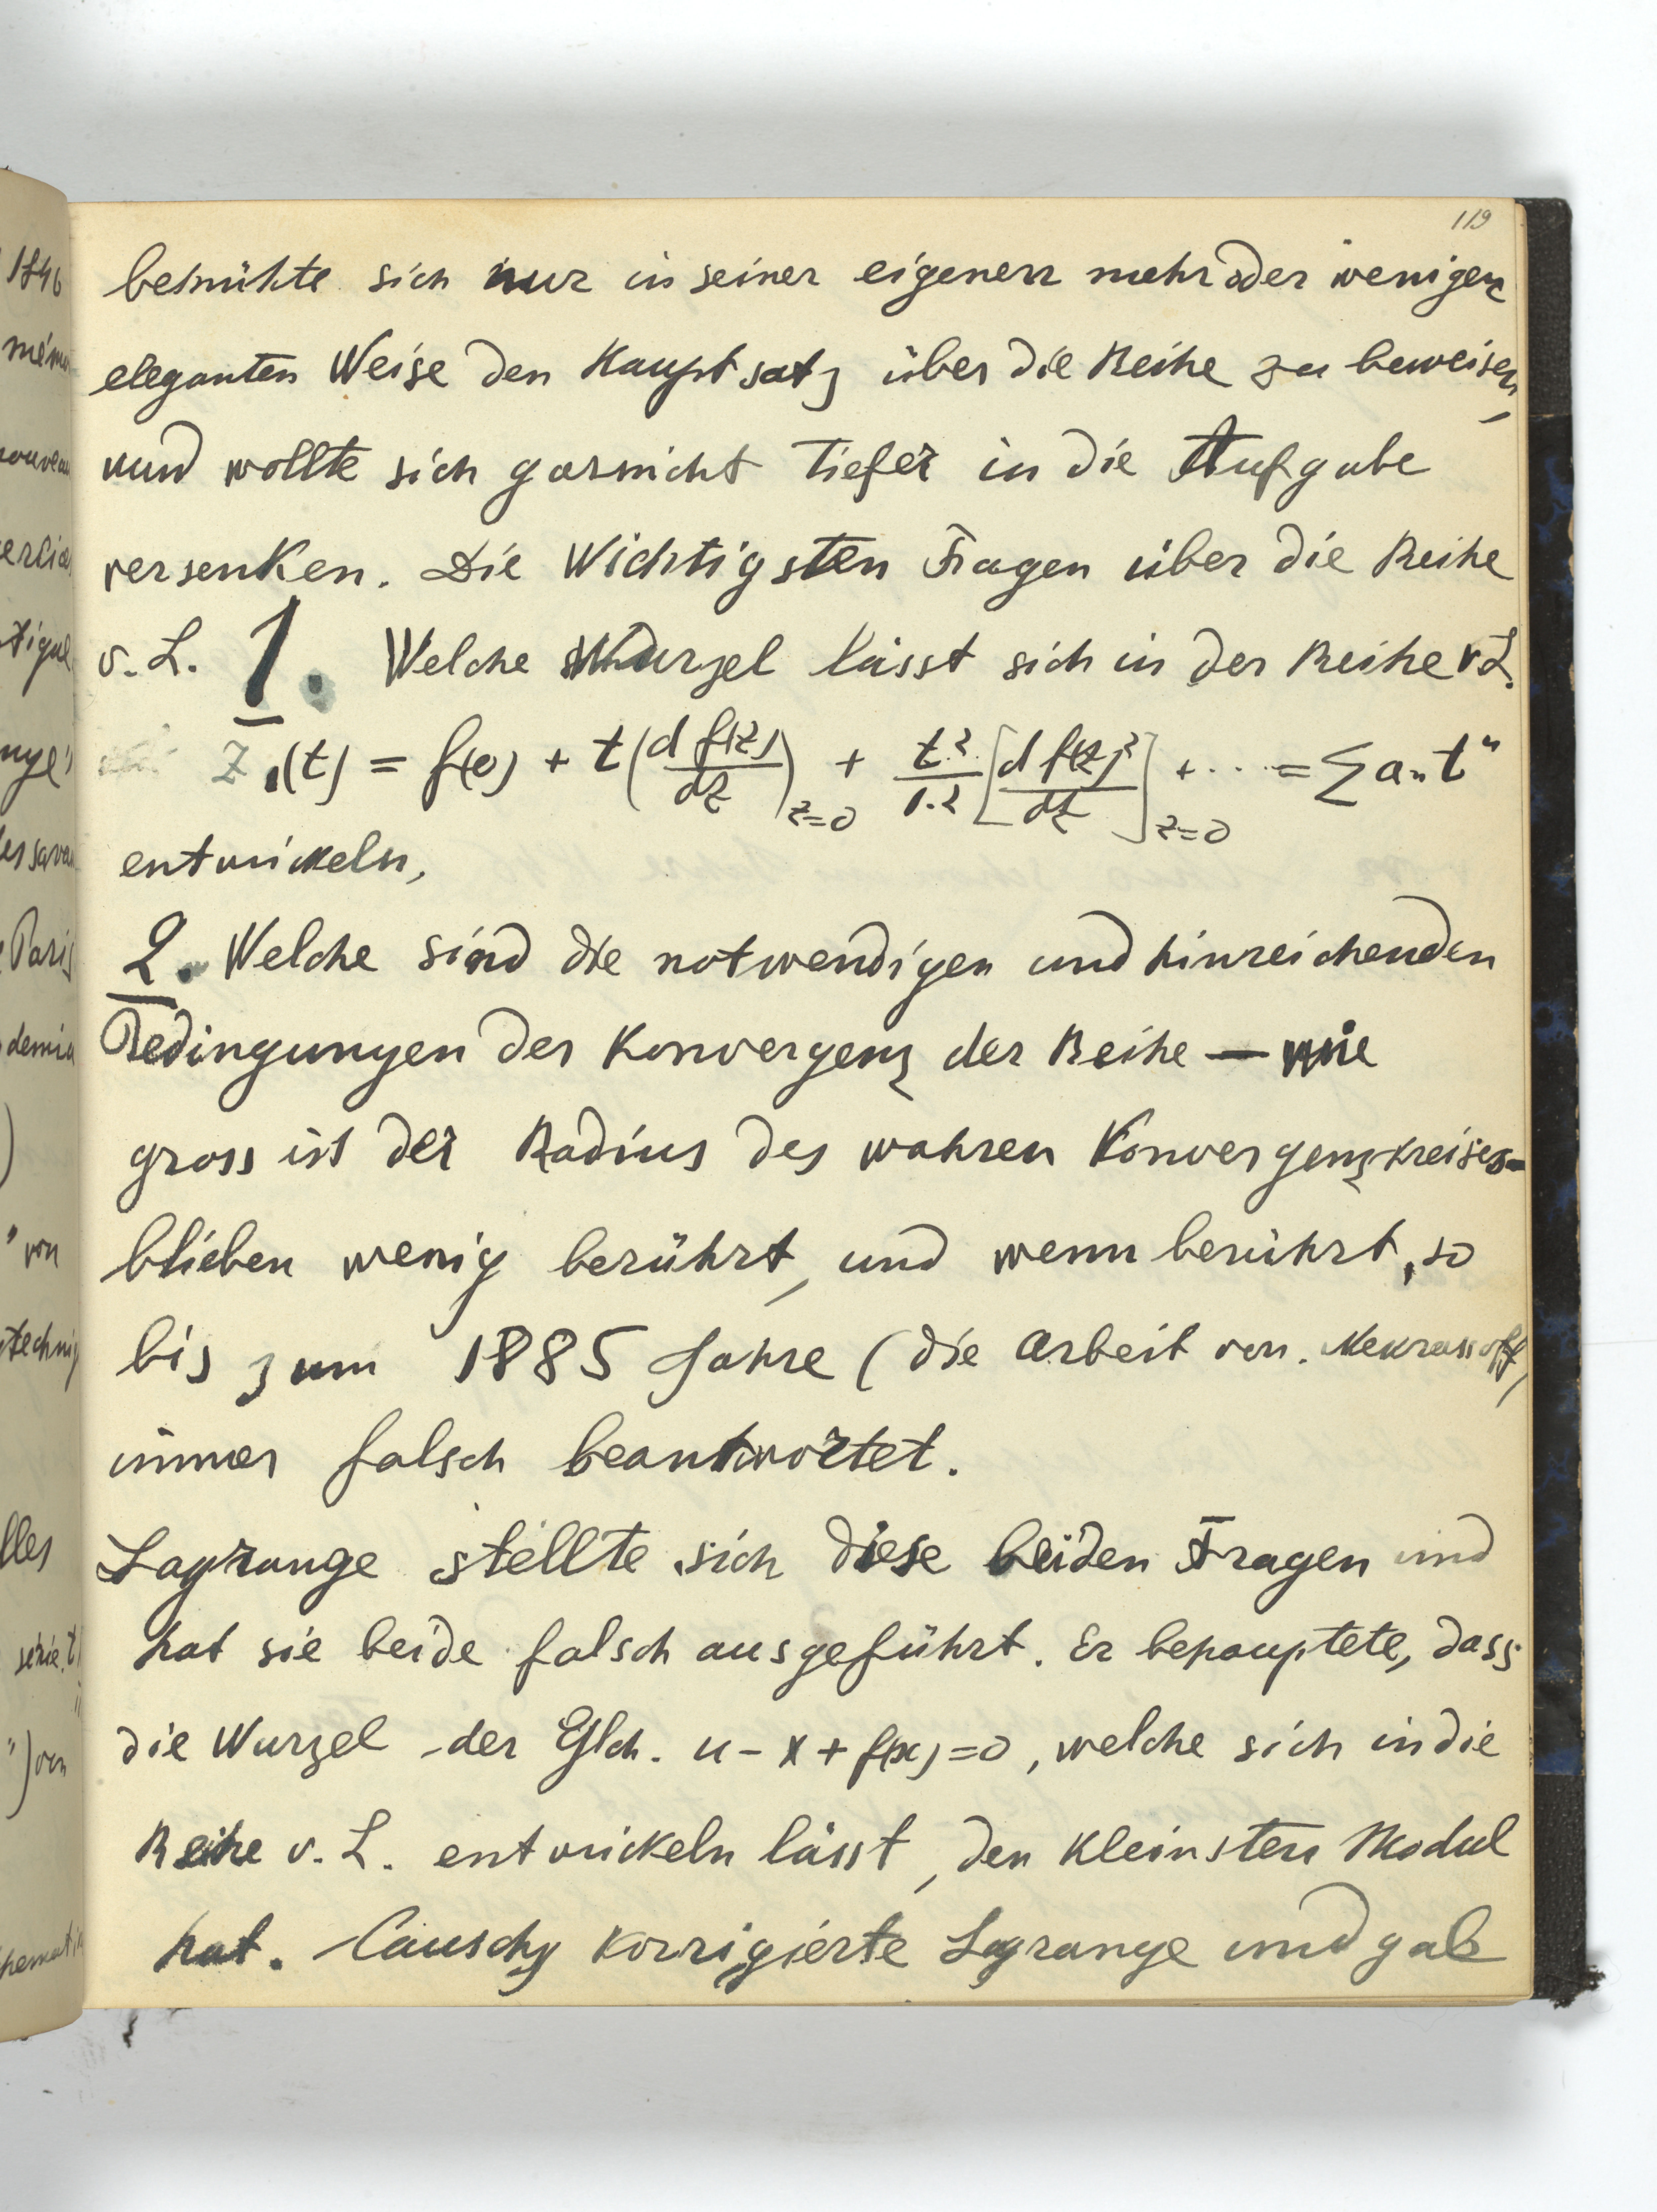 119
bemühte sich nur in seiner eigenen mehr oder weniger
eleganten Weise den Hauptsatz über die Reihe zu beweisen,
und wollte sich garnicht tiefer in die Aufgabe
versenken. Die Wichtigsten Fragen über die Reihe
v. L. 1. Welche Wurzel lässt sich in der Reihe v. L.
z₁(t) = f(0) + t(d f(z)/dz)z=0 + t²/1.2 [d f(z)²/dz]z=0 + ... = ∑ aₙ tⁿ
entwickeln,
2. Welche sind die notwendigen und hinreichenden
Bedingungen der Konvergenz der Reihe — wie
gross ist der Radius des wahren Konvergenzkreises –
blieben wenig berührt, und wenn berührt, so
bis zum 1885 Jahre (die Arbeit von. Nekrassoff)
immer falsch beantwortet.
Lagrange stellte sich diese beiden Fragen und
hat sie beide falsch ausgeführt. Er behauptete, dass
die Wurzel der Glch. u - x + f(x) = 0, welche sich in die
Reihe v. L. entwickeln lässt, den kleinsten Modul
hat. Cauchy korrigierte Lagrange und gab
1846
nouveau
Paris
" von
lles
série
") von